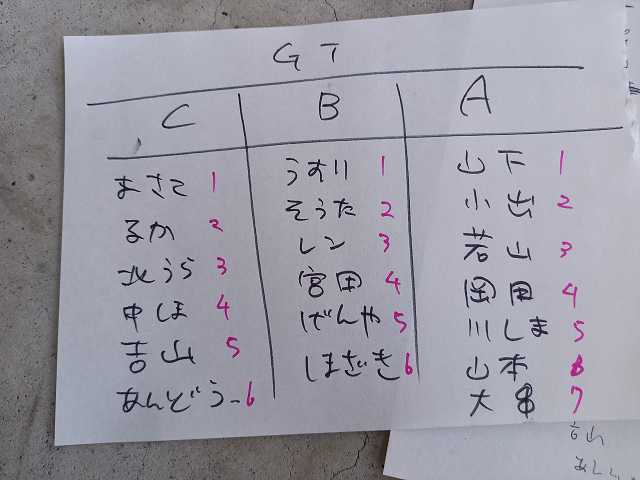 GT
C B A
まさと 1 うすい 1 山下 1
るか 2 そうた 2 小出 2
北うら 3 レン 3 若山 3
中しま 4 宮田 4 岡田 4
吉山 5 げんや 5 川しま 5
あんどう 6 しまざき 6 山本 6
大 7
吉山